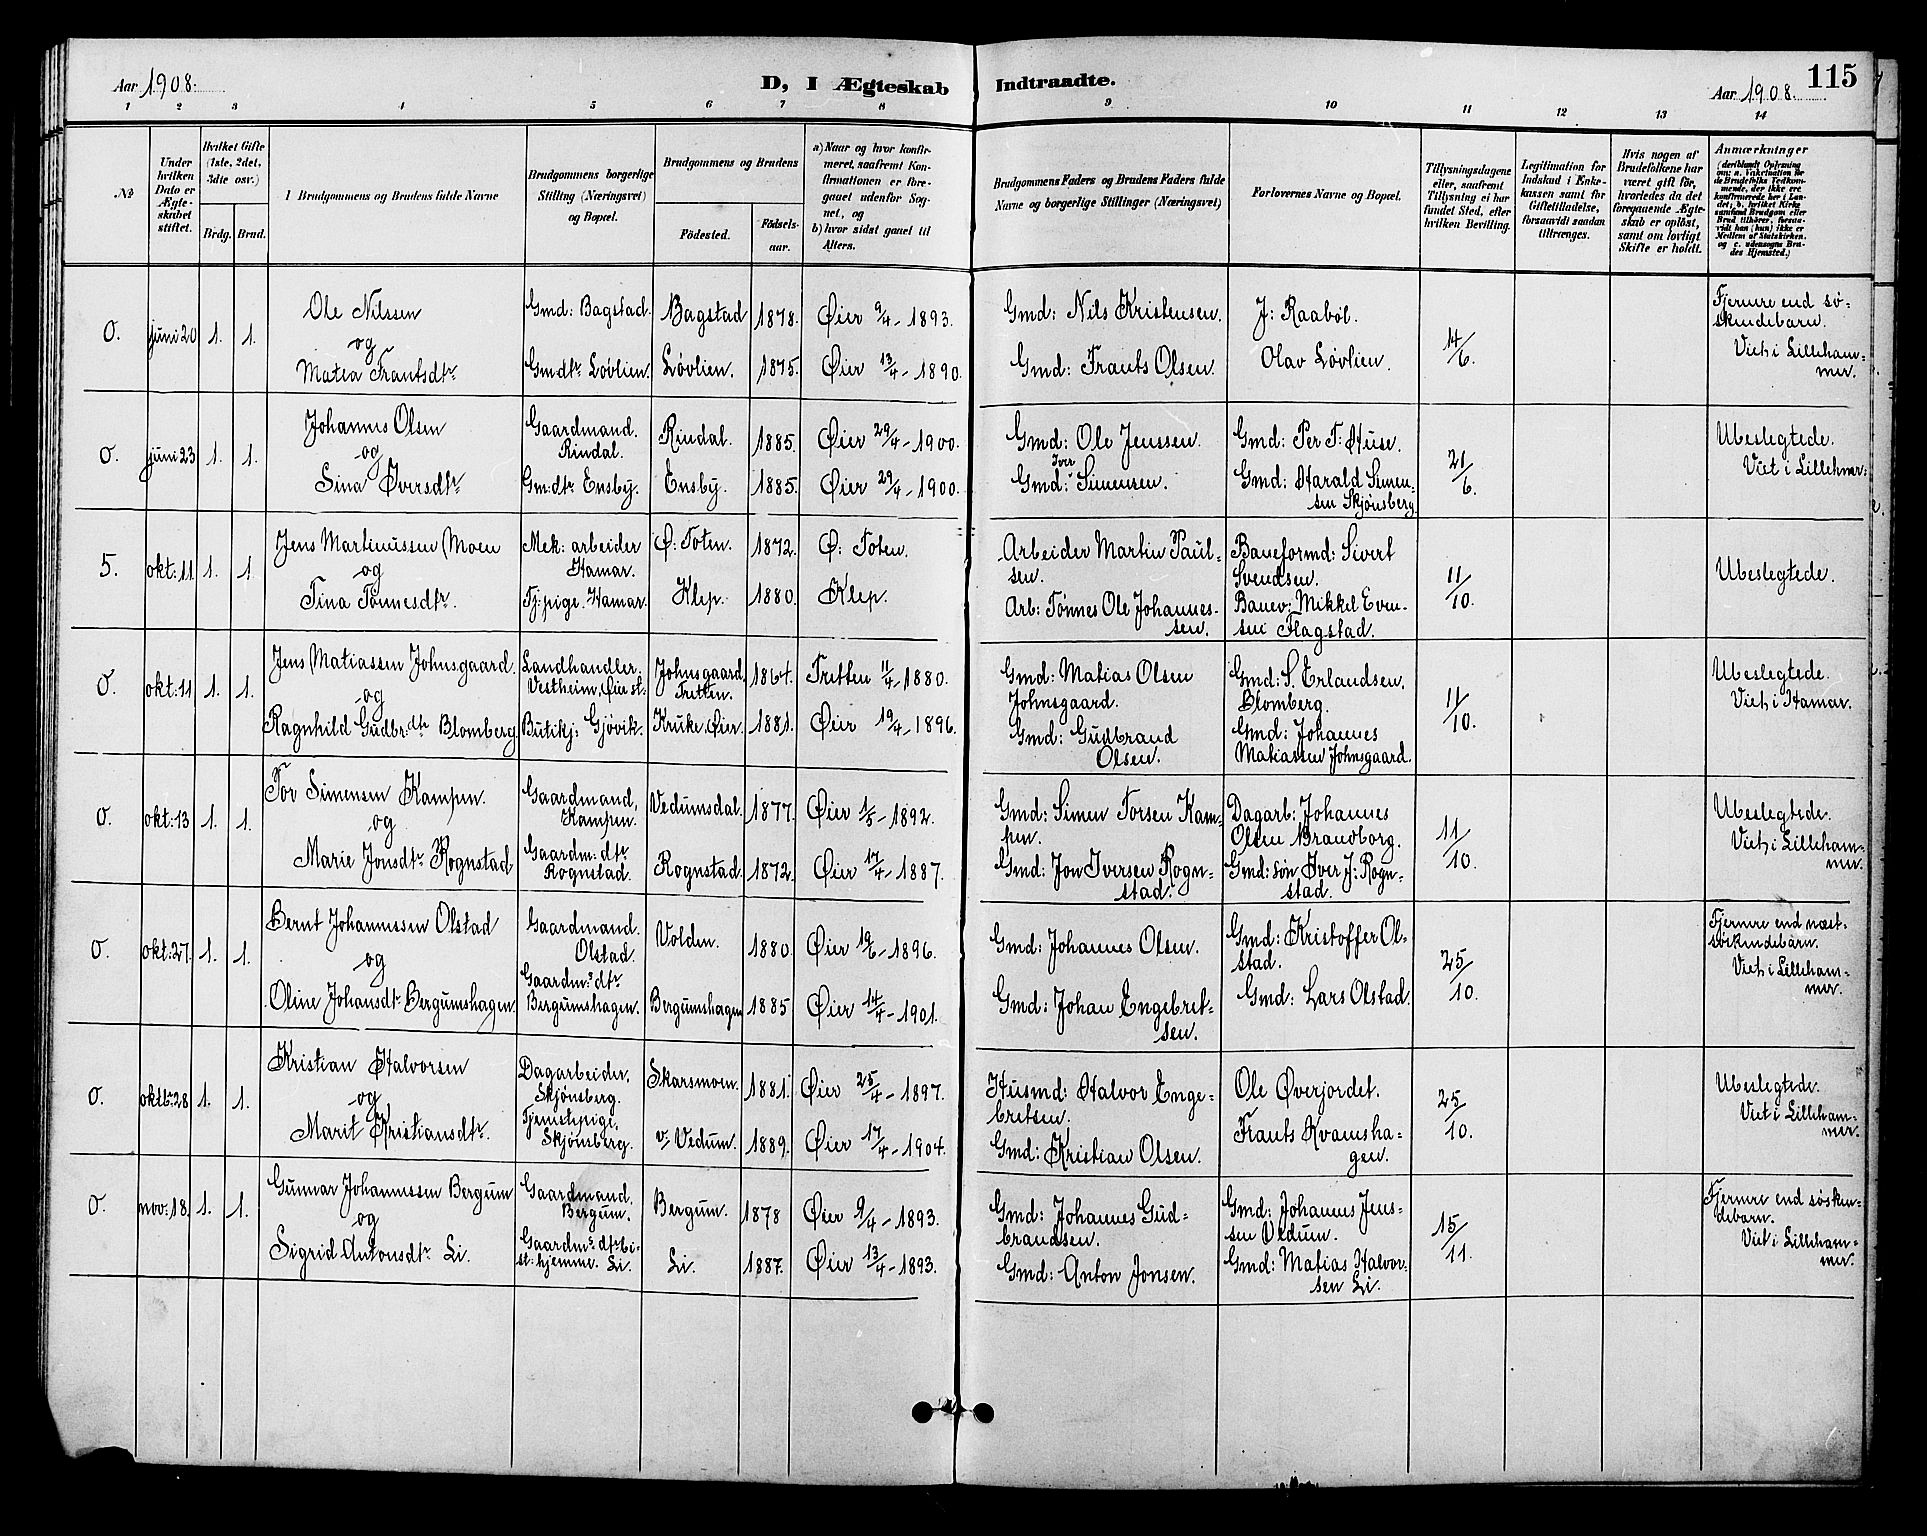 Aar 1908.
D, I Ægteskab Indtraadte.
Aar 1908.
115
1 2 3 4 5 6 7 8 9 10 11 12 13 14
No
Under hvilken Dato er Ægteskabet stiftet.
Hvilket Gifte (1ste, 2det, 3die osv.)
Brdg. Brud.
1 Brudgommens og Brudens fulde Navne
Brudgommens borgerlige Stilling (Næringsvei) og Bopæl.
Brudgommens og Brudens
Födested.
Födselsaar.
a) Naar og hvor konfirmeret, saafremt Konfirmationen er foregaaet udenfor Sognet, og
b) hvor sidst gaaet til Alters.
Brudgommens Faders og Brudens Faders fulde Navne og borgerlige Stillinger (Næringsvei)
Forlovernes Navne og Bopæl.
Tillysningsdagene eller, saafremt Tillysning ei har fundet Sted, efter hvilken Bevilling.
Legitimation for Indskud i Enkekassen samt for Giftetilladelse, forsaavidt saadan tiltrænges.
Hvis nogen af Brudefolkene har været gift för, hvorledes da det foregaaende Ægteskab er oplöst, samt om lovligt Skifte er holdt.
Anmærkninger
(deriblandt Oplysning om: a. Vakcination for de Brudefolks Vedkommende, der ikke ere konfirmerede her i Landet; b. hvilket Kirkesamfund Brudgom eller Brud tilhörer, forsaavidt han (hun) ikke er Medlem af Statskirken. og c. udensogns Brudes Hjemsted.)
0. juni 20 1. 1.
Ole Nilssen
og
Matea Frantsdtr
Gmd: Bagstad.
Gmdtr Løvlien.
Bagstad 1878. Øier 9/4 - 1893.
Løvlien. 1875. Øier 13/4 - 1890.
Gmd: Nils Kristensen.
Gmd: Frants Olsen.
J: Raabøl.
Olav Løvlien.
14/6.
Fjernere end sø-
skendebarn.
Viet i Lilleham-
mer.
0. juni 23 1. 1.
Johannes Olsen
og
Sina Øversdtr
Gaardmand.
Rindal.
Gmdtr Ensby.
Rindal. 1885. Øier 29/4 - 1900.
Ensby. 1885. Øier 29/4 - 1900.
Gmd: Ole Jenssen.
Iver
Gmd: Simensen.
Gmd: Per T: Huse.
Gmd: Harald Simen-
sen Skjønsberg.
21/6.
Ubeslegtede.
Viet i Lillehmer:
5. okt: 11 1. 1.
Jens Martinussen Moen
og
Tina Tønnesdtr.
Mek: arbeider
Hamar.
Tj:pige. Hamar.
Ø: Toten. 1872. Ø: Toten.
Klep. 1880. Klep.
Arbeider Martin Paul-
sen.
Arb: Tønnes Ole Johannes-
sen.
Baneformd: Sivert
Svendsen.
Banev: Mikkel Even-
sen Flagstad.
11/10.
Ubeslegtede.
0. okt: 11 1. 1.
Jens Matiassen Johnsgaard.
og
Ragnhild Gudbr: dtr Blomberg
Landhandler.
Vestheim, Øie st:
Butikj: Gjøvik.
Johnsgaard,
Tretten. 1864. Tretten 11/4 - 1880.
Kruke, Øier. 1881. Øier 19/4 - 1896.
Gmd: Matias Olsen
Johnsgaard.
Gmd: Gudbrand
Olsen.
Gmd: S. Erlandsen,
Blomberg.
Gmd: Johannes
Matiassen Johnsgaard.
11/10.
Ubeslegtede.
Viet i Hamar.
0. okt: 13 1. 1.
Tor Simensen Kampen.
og
Marie Jonsdtr Rognstad
Gaardmand,
Kampen.
Gaardm: dtr
Rognstad.
Vedumsdal. 1877. Øier 1/5 - 1892.
Rognstad. 1872. Øier 17/4 - 1887.
Gmd: Simen Torsen Kam-
pen.
Gmd: Jon Iversen Rogn-
stad.
Dagarb: Johannes
Olsen Brandborg.
Gmd: søn Øver J: Rogn-
stad.
11/10.
Ubeslegtede.
Viet i Lilleham-
mer.
0. okt: 27. 1. 1.
Bernt Johannessen Olstad
og
Oline Johansdtr Bergumshagen.
Gaardmand.
Olstad.
Gaardm: dtr
Bergumshagen.
Volden. 1880. Øier 19/6 - 1896.
Bergumshagen 1885 Øier 14/4 - 1901.
Gmd: Johannes Olsen.
Gmd: Johan Engebret-
sen.
Gmd: Kristoffer Ol-
stad.
Gmd: Lars Olstad.
25/10.
Fjernere end næst-
søskendebarn.
Viet i Lilleham-
mer.
0. oktb: 28 1. 1.
Kristian Halvorsen
og
Marit Kristiansdtr.
Dagarbeider.
Skjønsberg.
Tjenestepige,
Skjønsberg.
Skarsmoen. 1881. Øier 25/4 - 1897.
v: Vedum. 1889. Øier 17/4 - 1904.
Husmd: Halvor Enge-
bretsen.
Gmd: Kristian Olsen.
Ole Øverjordet.
Frants Kvamsha-
gen.
25/10.
Ubeslegtede.
Viet i Lilleham-
mer.
0. nov: 18. 1. 1.
Gunnar Johannessen Bergum
og
Sigrid Antonsdtr Li.
Gaardmand.
Bergum.
Gaardms dtr bi-
st: hjemme. Li.
Bergum. 1878 Øier 9/4 - 1893.
Li. 1887. Øier 13/4 - 1893.
Gmd: Johannes Gud-
brandsen.
Gmd: Anton Jonsen.
Gmd: Johannes Jens-
sen Vedum.
Gmd: Matias Halvor-
sen Li.
15/11.
Fjernere end søsken-
debarn.
Viet i Lilleham-
mer.